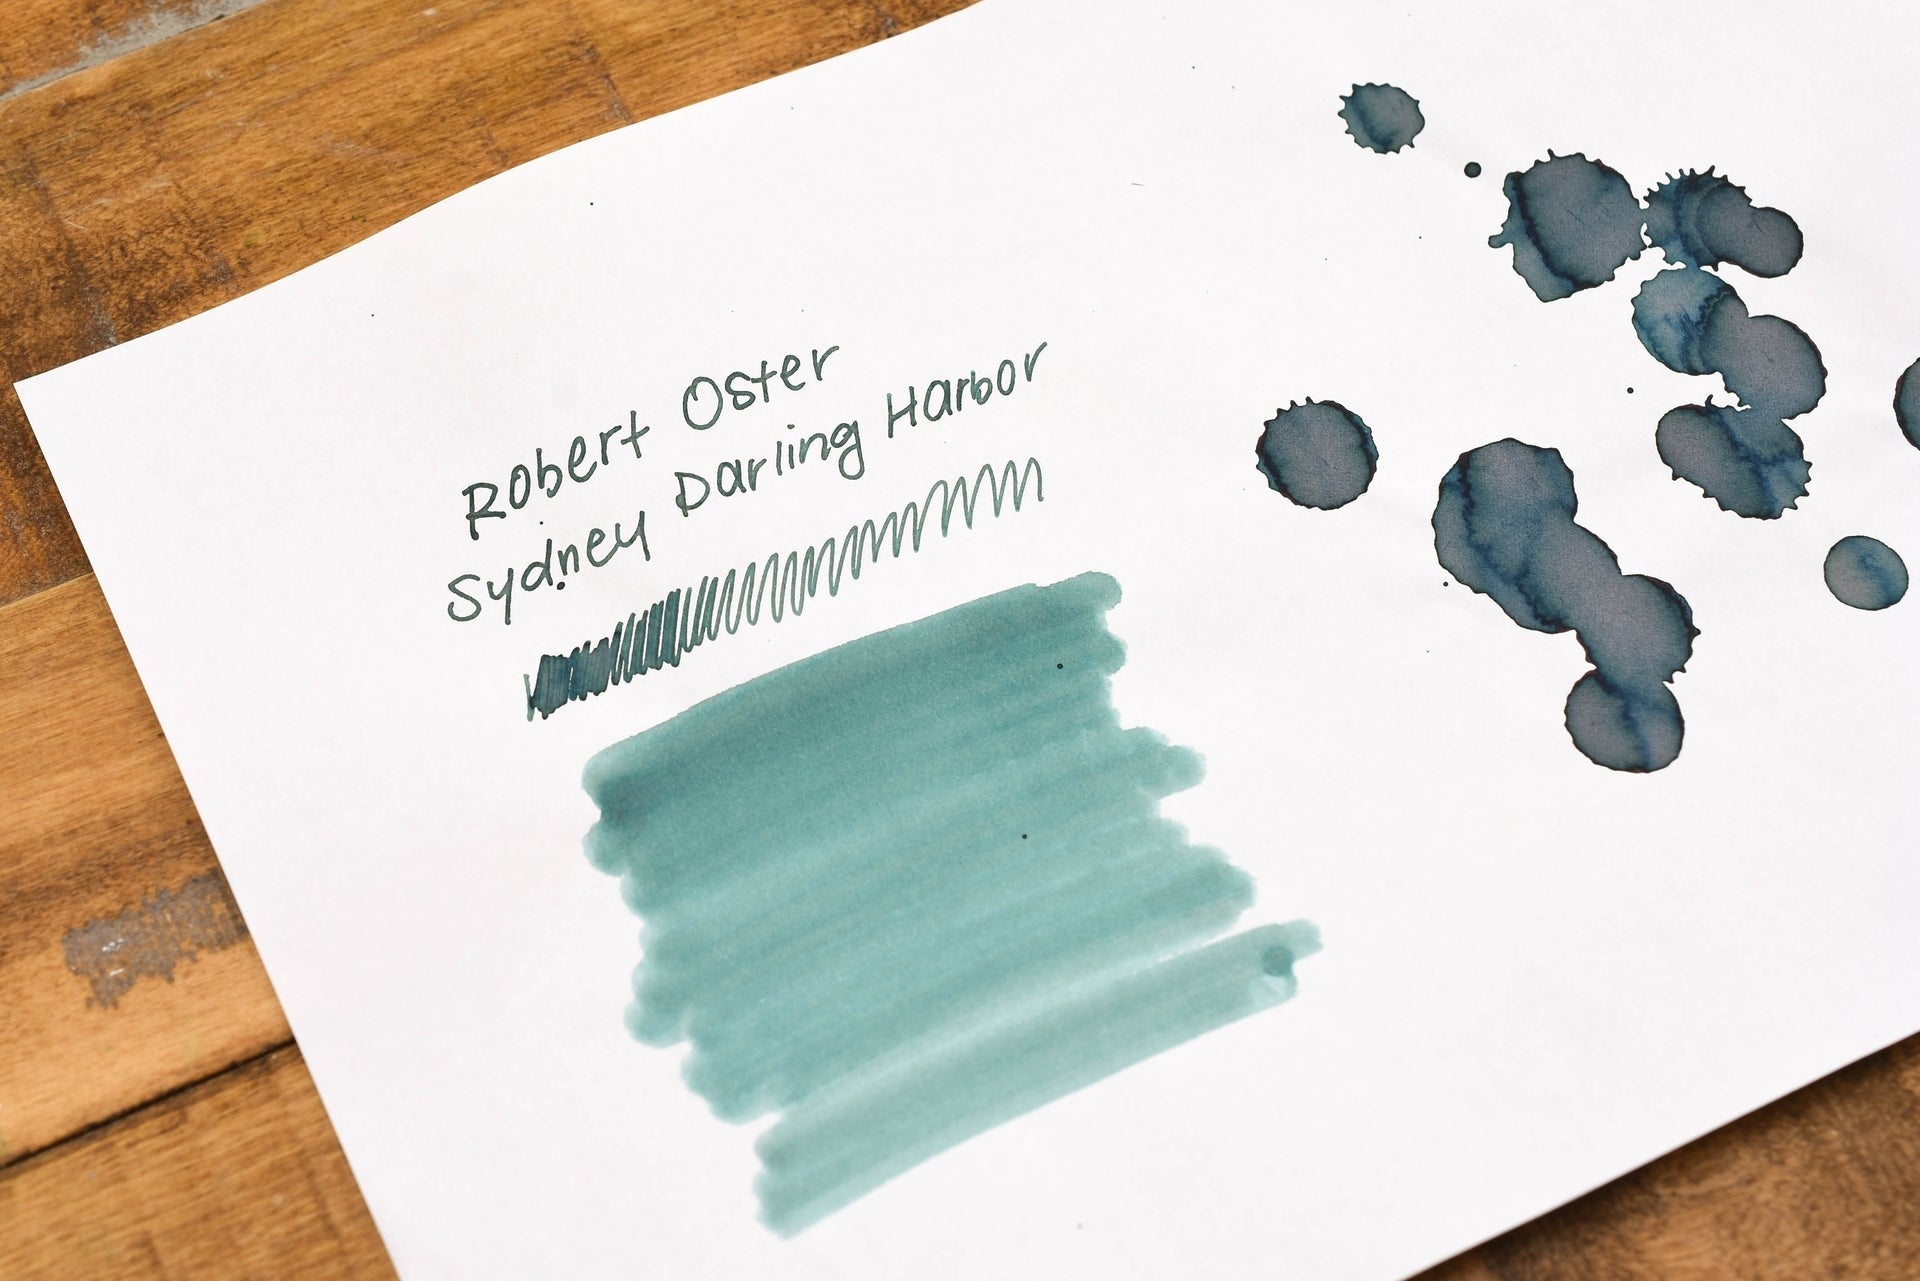 Robert Oster
Sydney Darling Harbor